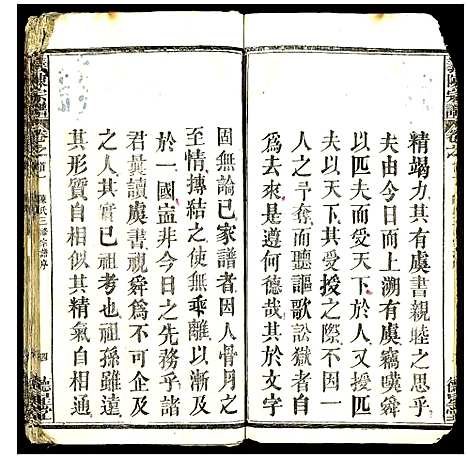 精竭力其有虞書親睦之思乎
夫由今日而上溯有虞竊嘆舜
以匹夫而受天下於人又授匹
夫以天下其受授之際不因一
人之予奪而聽謳歌訟獄者自
為去來是遵何德哉其於文字
固無論已家譜者因人骨肉之
至情摶結之使無乖離以漸及
於一國盍非今日之先務乎諸
君彙讀虞書視舜為不可企及
之人其實已祖考也祖孫雖遠
其形質自相似其精氣自相通
陳氏三修宗譜序
四